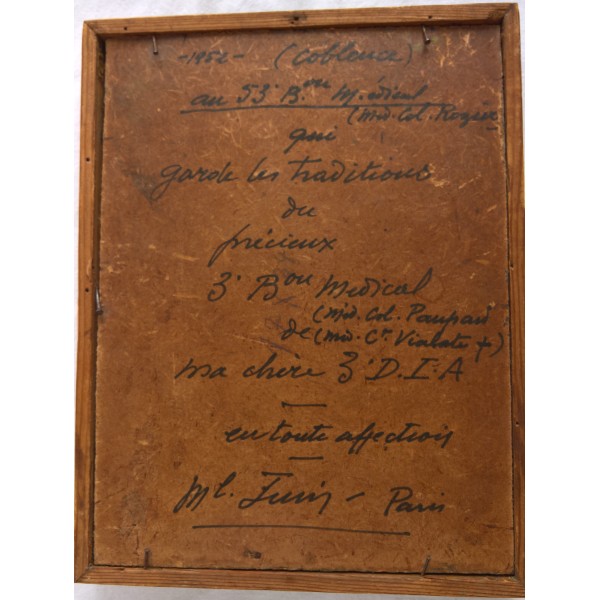 - 1952 - (Coblence)
au 53e Bon Médical
(Méd. Col. Rozier
qui
garde les traditions
du
précieux
3e Bon Medical
(Méd. Col. Paupard
de (Méd. Ct. Vialate +)
ma chère 3e D.I.A
—
en toute affection
—
Ml. Juin - Paris